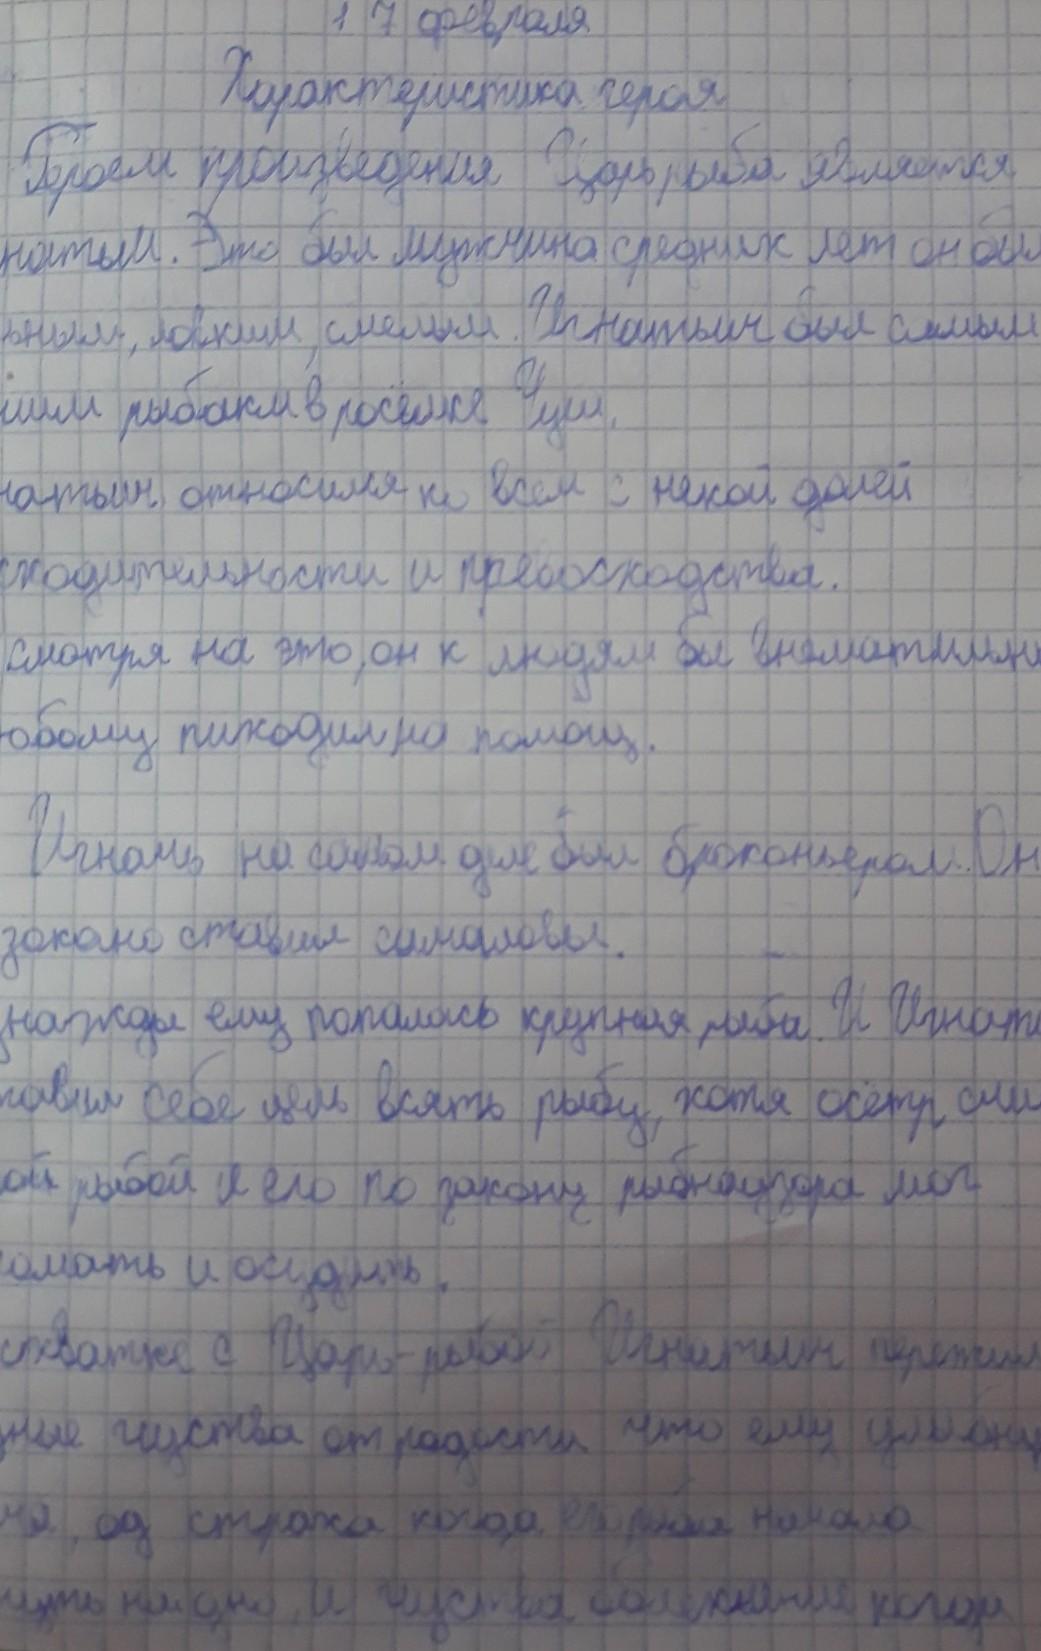 17 февраля
Характеристика героя
Героем произведения Царь рыба является
натьич. Это был мужчина средних лет он был
ьным, ловким, смелым. Игнатьич был самым
шим рыбаком в посёлке Чуш.
натьич относился ко всем с некой долей
сходительности и превосходства.
смотря на это, он к людям бы вниматильны
юбому пиходил на помощ.
Игнать на самом деле был браконьером. Он
закано ставил самаловы.
нажды ему попалась крупная рыба. И Игнать
тавил себе цель всять рыбу, хотя осётр сли
ой рыбой и его по закону рыбнадзора мог
омать и осудить.
схватке с Царь-рыбой Игнатьич пережил
ные чуства от радости что ему улыбну
ча, од страха когда его рыба начала
нуть на дно. И чуства когда